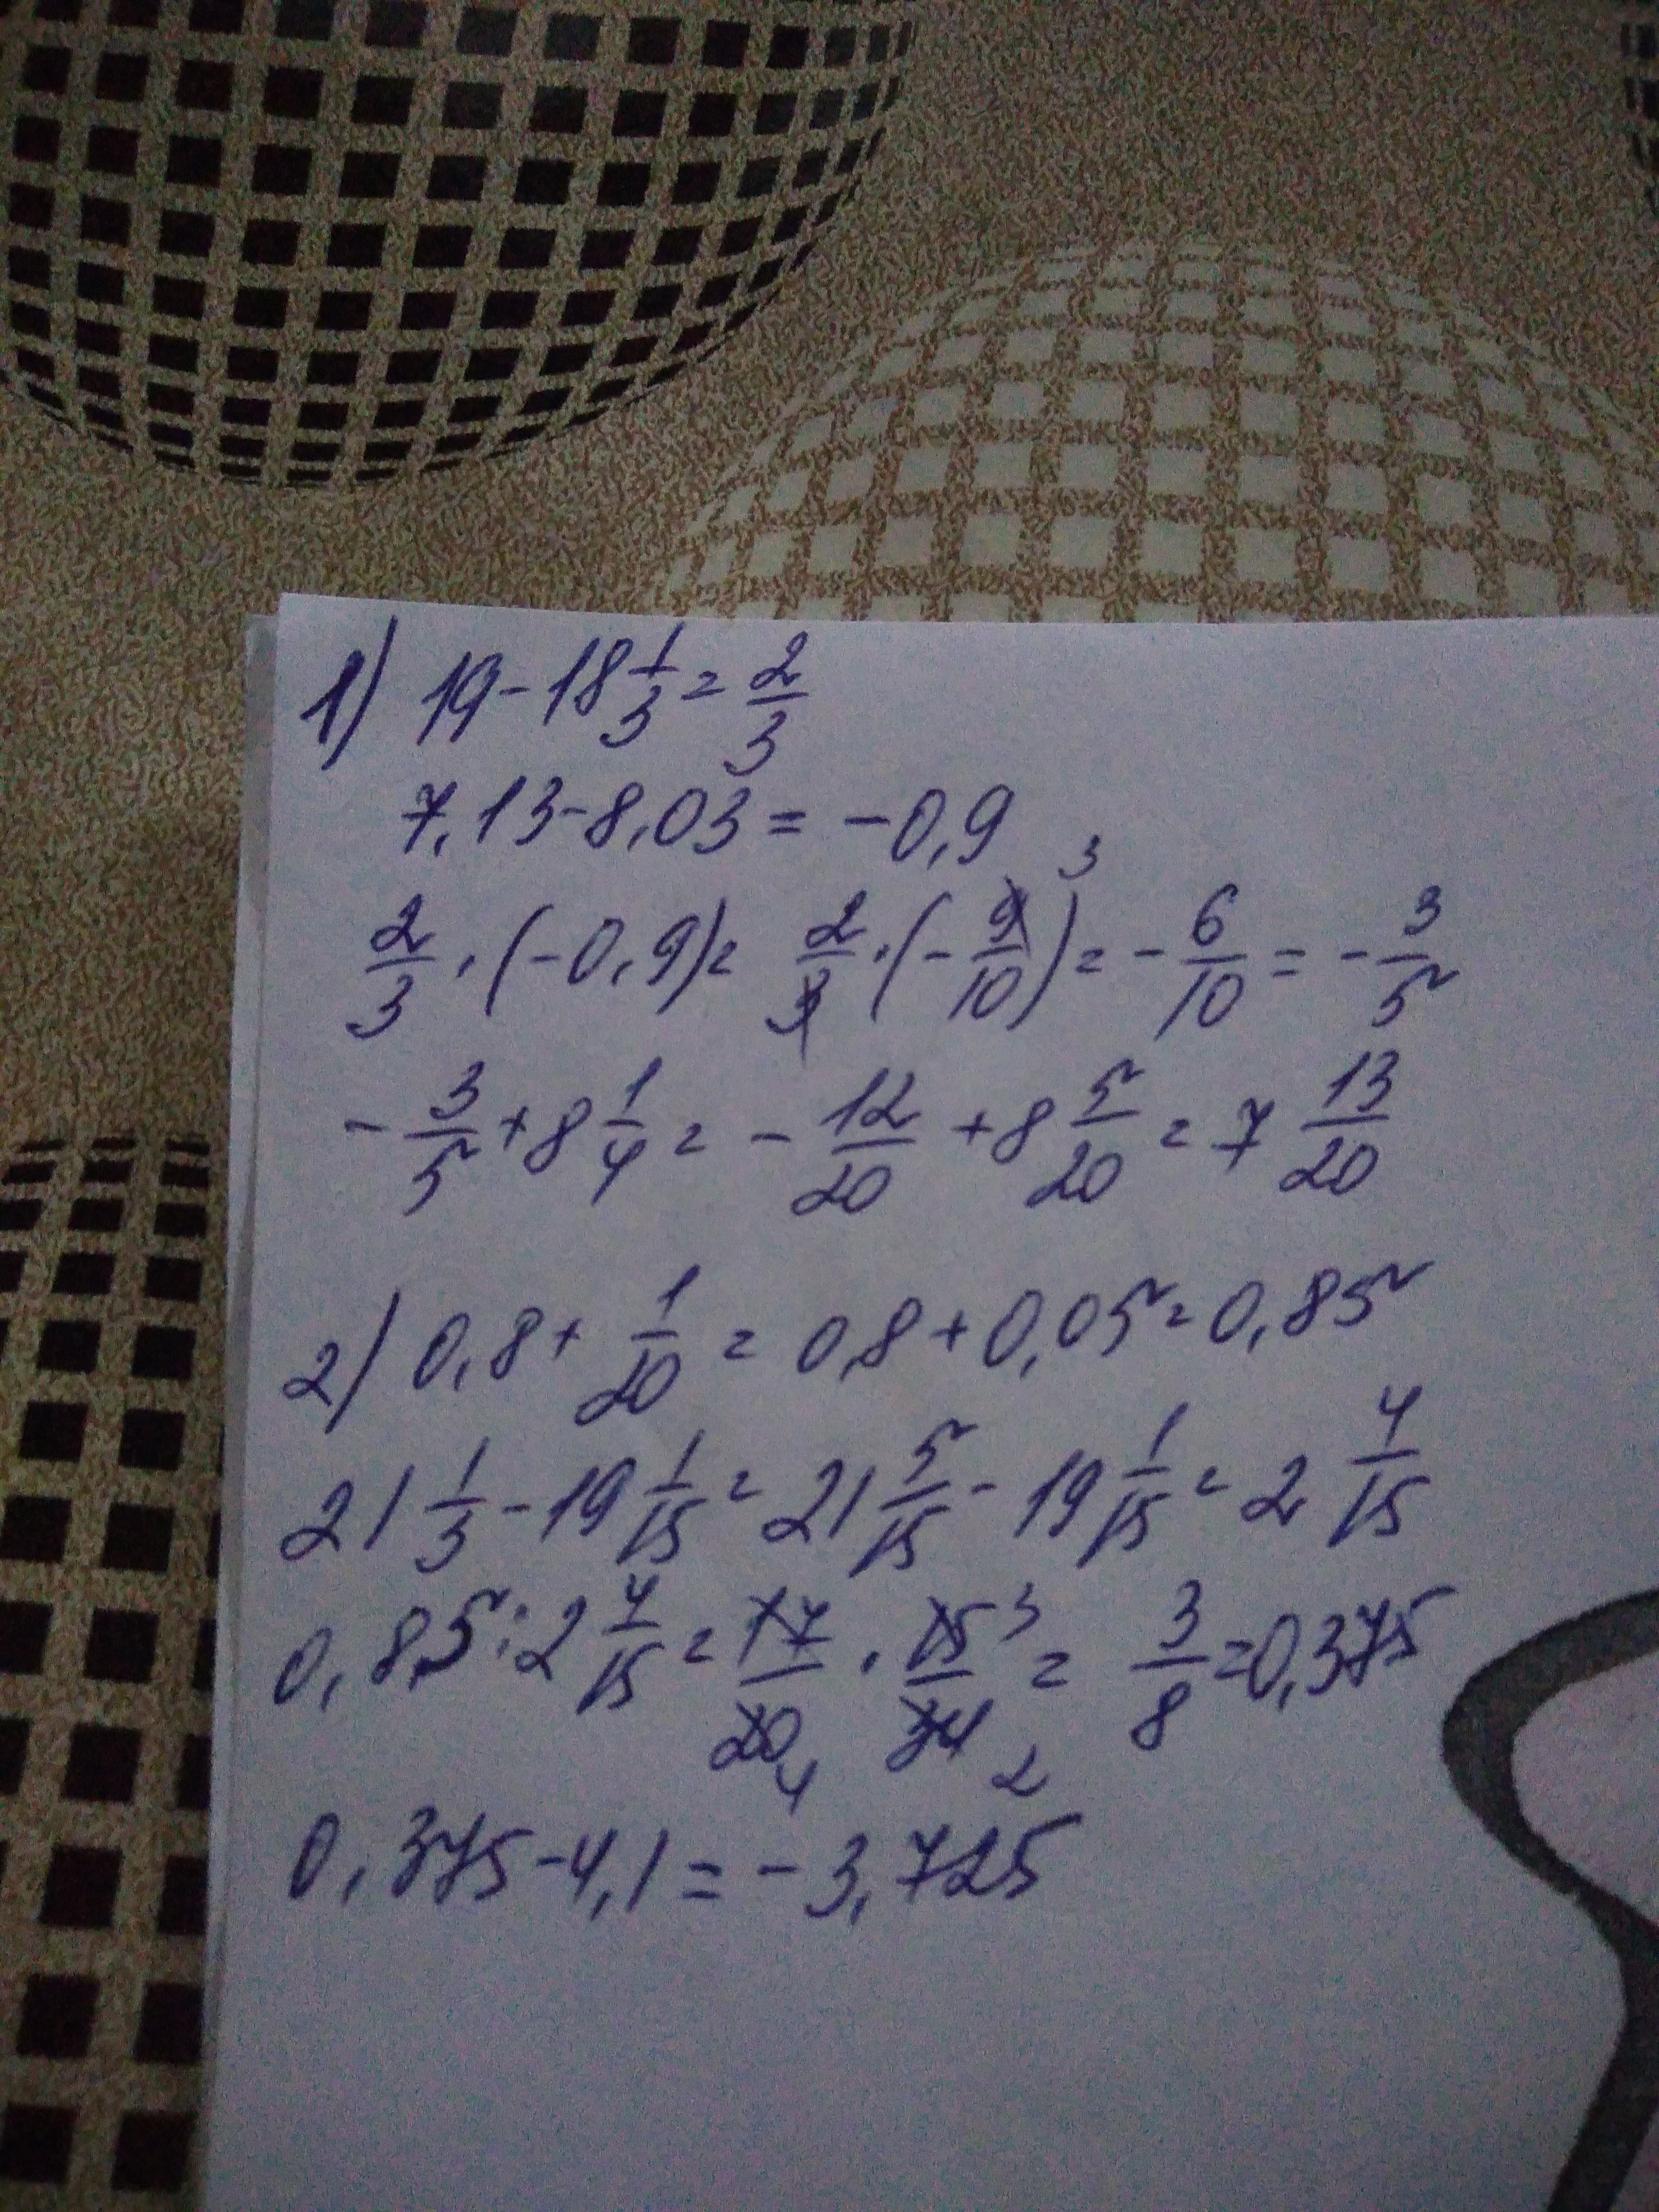 1) 19-18 1/3 = 2/3
7,13-8,03 = -0,9
2/3 · (-0,9) = 2/3 · (-9/10) 3 = -6/10 = -3/5
-3/5 + 8 1/4 = -12/20 + 8 5/20 = 7 13/20
2) 0,8 + 1/20 = 0,8 + 0,05 = 0,85
21 1/3 - 19 1/15 = 21 5/15 - 19 1/15 = 2 4/15
0,85 : 2 4/15 = 17/20 4 · 15 3/34 2 = 3/8 = 0,375
0,375-4,1 = -3,725